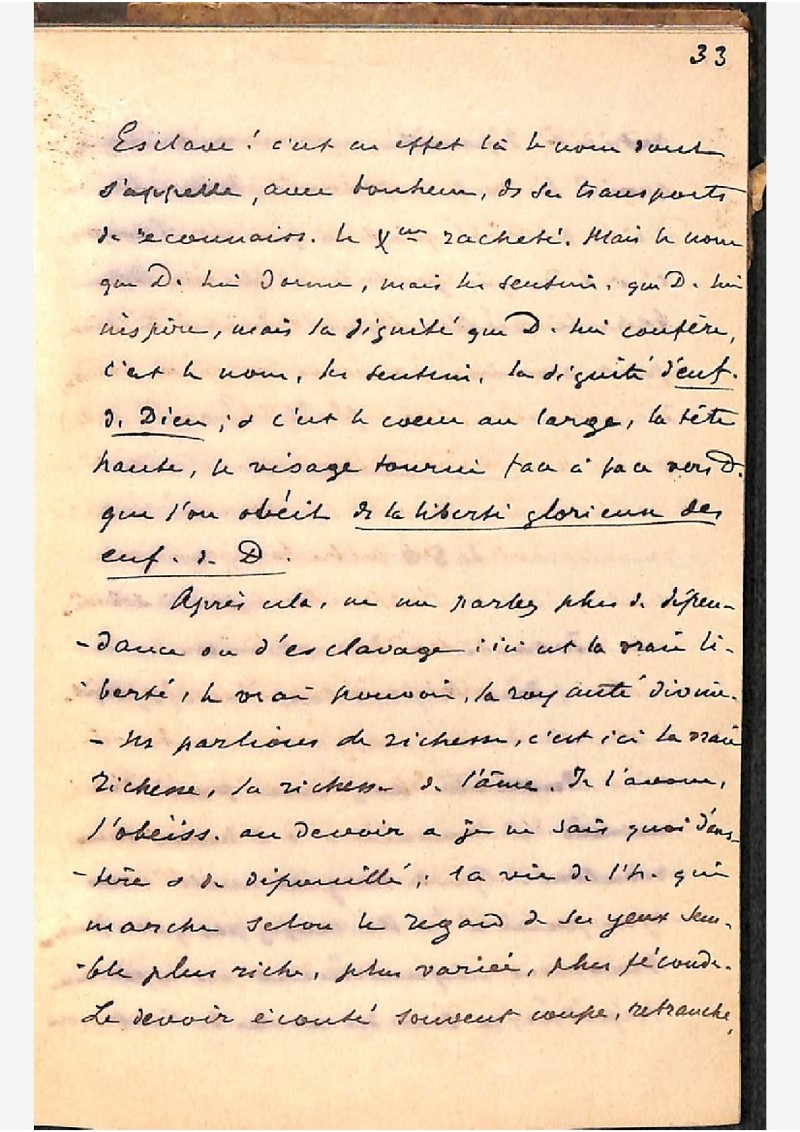 33
Esclave ! c'est en effet là le nom dont
s'appelle, avec bonheur, ds ses transports
de reconnaiss. le Xen racheté. Mais le nom
que D. lui donne, mais les sentim. que D. lui
inspire, mais la dignité que D. lui confère,
c'est le nom, les sentim. la dignité d'enf.
de Dieu ; & c'est le coeur au large, la tête
haute, le visage tourné face à face vers D.
que l'on obéit ds la liberté glorieuse des
enf. de D.
Après cela, ne me parlez plus de dépen-
-dance ou d'esclavage : ici est la vraie li-
berté, le vrai pouvoir, la royauté divine.
- Ns parlions de richesse, c'est ici la vraie
richesse, la richesse de l'âme. Je l'avoue,
l'obéiss. au devoir a je ne sais quoi d'aus-
-tère & de dépouillé ; la vie de l'h. qui
marche selon le regard de ses yeux sem-
-ble plus riche, plus variée, plus féconde.
Le devoir écouté souvent coupe, retranche,